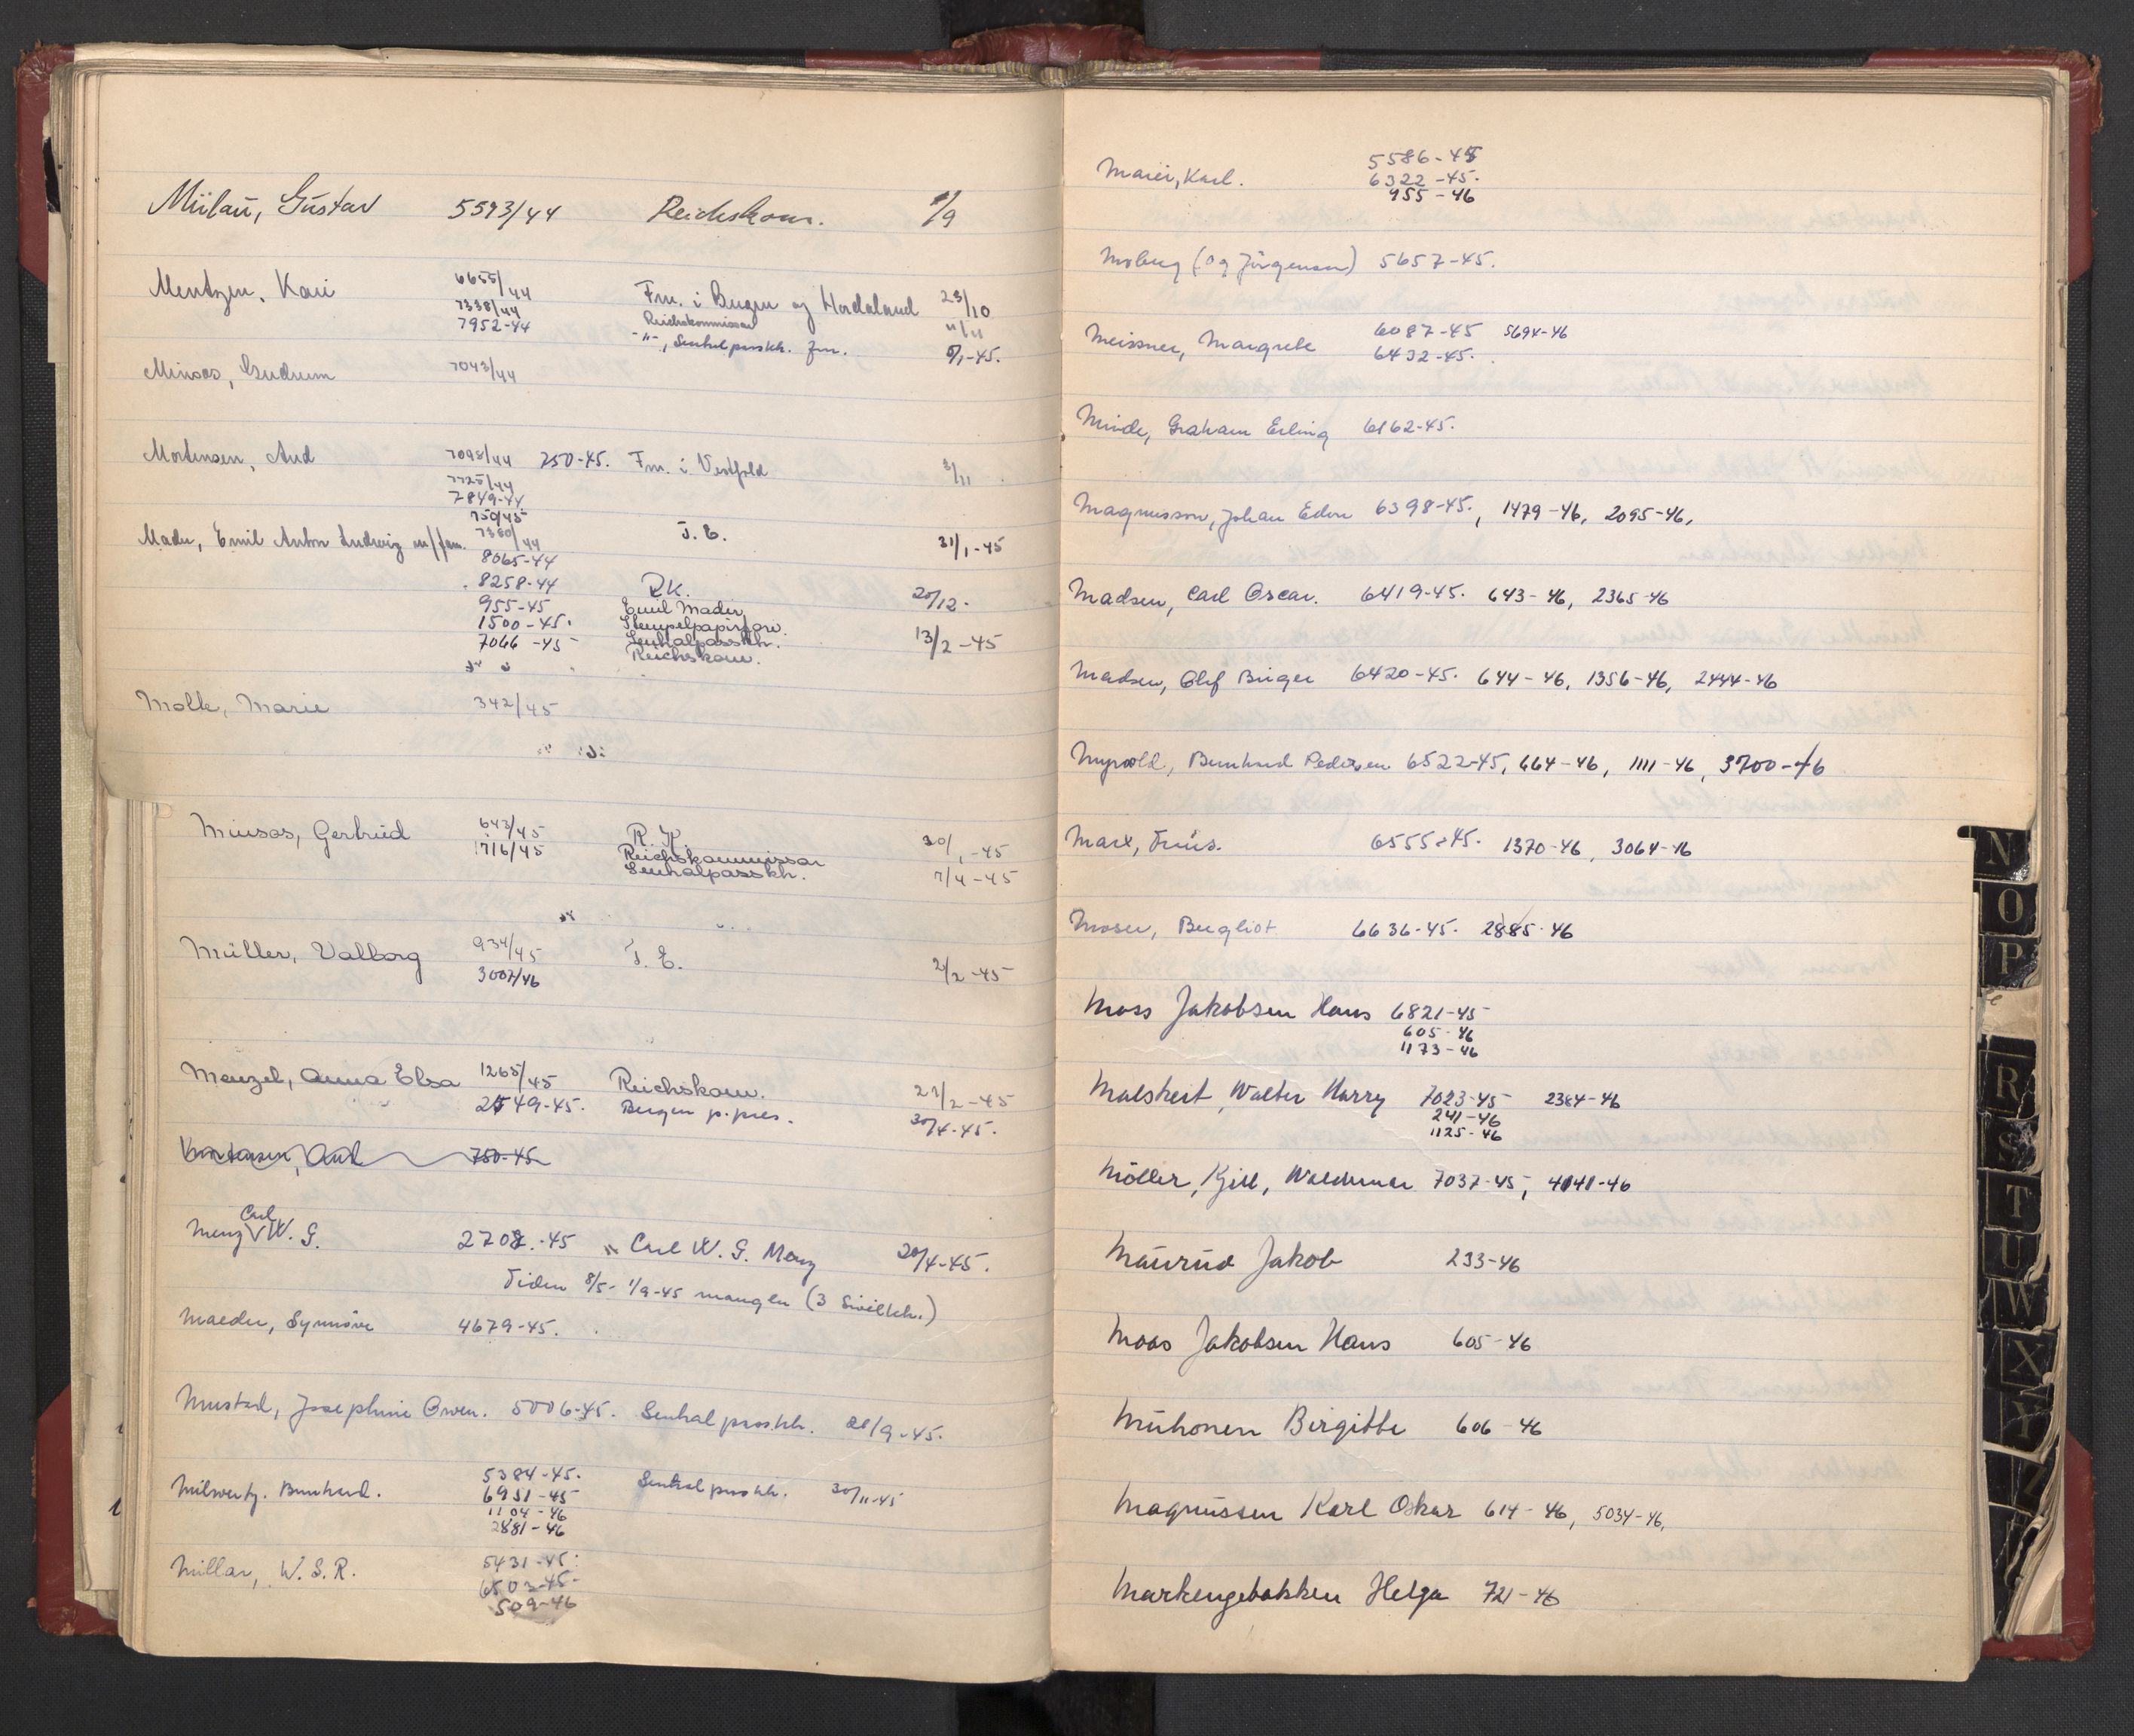 Mülau, Gustav 5593/44 Reichskom. 1/9
Mentzen, Kari 6655/44 Fm. i Bergen og Hordaland 23/10
7338/44 Reichskommissar
7952-44 -"-, Sentralpasskh. fm. 8/1-45.
Minsas, Gudrum 7043/44
Mortensen, Aud 7098/44 750-45. Fm. i Vestfold 3/11
7725/44
7849-44
750/45
Mader, Emil Anton Ludwig m/fam. 7380/44 J. E. 31/1-45
8065-44
8258-44 RK. 20/12.
955-45 Emil Mader
1500-45. Stempelpapirforv. 13/2-45
7066-45 Sentralpasskh.
Reichskom.
Molk, Marie 342/45
Minsas, Gertrud 643/45 R. K. 30/1-45
1716/45 Reichskommissar
Sentralpasskh. 7/4-45
Müller, Valborg 934/45 J. E. 2/2-45
3007/46
Menzel, Anna Elsa 1265/45 Reichskom. 21/2-45
2549-45. Bergen p.pres. 30/4-45.
750-45
Menz Carl W. G. 2708-45 Carl W. G. Menz 20/4-45.
Tiden 8/5-1/9-45 mangler (3 Sivilkh.)
Maeder, Synnöve 4679-45.
Mustad, Josephine Owen. 5006-45. Sentralpasskh. 21/9-45.
Milwertz. Bernhard. 5384-45. Sentralpasskh. 30/11-45
6951-45
1104-46
2881-46
Millar, W. S. R. 5431-45.
6503-45-
509-46
Maier, Karl. 5586-45
6322-45.
955-46
Moberg (og Jörgensen) 5657-45.
Meissner, Margrete 6087-45 5694-46
6432-45.
Minde, Graham Erling 6162-45.
Magnusson, Johan Edvin 6398-45., 1479-46, 2095-46,
Madsen, Carl Oscar. 6419-45. 643-46, 2365-46
Madsen, Olef Birger 6420-45. 644-46, 1356-46, 2444-46
Myrvold, Bernhard Pedersen 6522-45, 664-46, 1111-46, 3700-46
Marx, Friis. 6555-45. 1370-46, 3064-46
Moser, Bergliot 6636-45. 2885-46
Moss Jakobsen Hans 6821-45
605-46
1173-46
Malskeit, Walter Harry 7023-45 2384-46
241-46
1125-46
Möller, Kjell, Waldemar 7037-45, 4141-46
Maurud Jakob 233-46
Moos Jakobsen Hans 605-46
Muhonen Birgitte 606-46
Magnussen Karl Oskar 614-46, 5034-46,
Markengebakken Helga 721-46
N
O
P
R
S
T
U
W
X
Y
Z